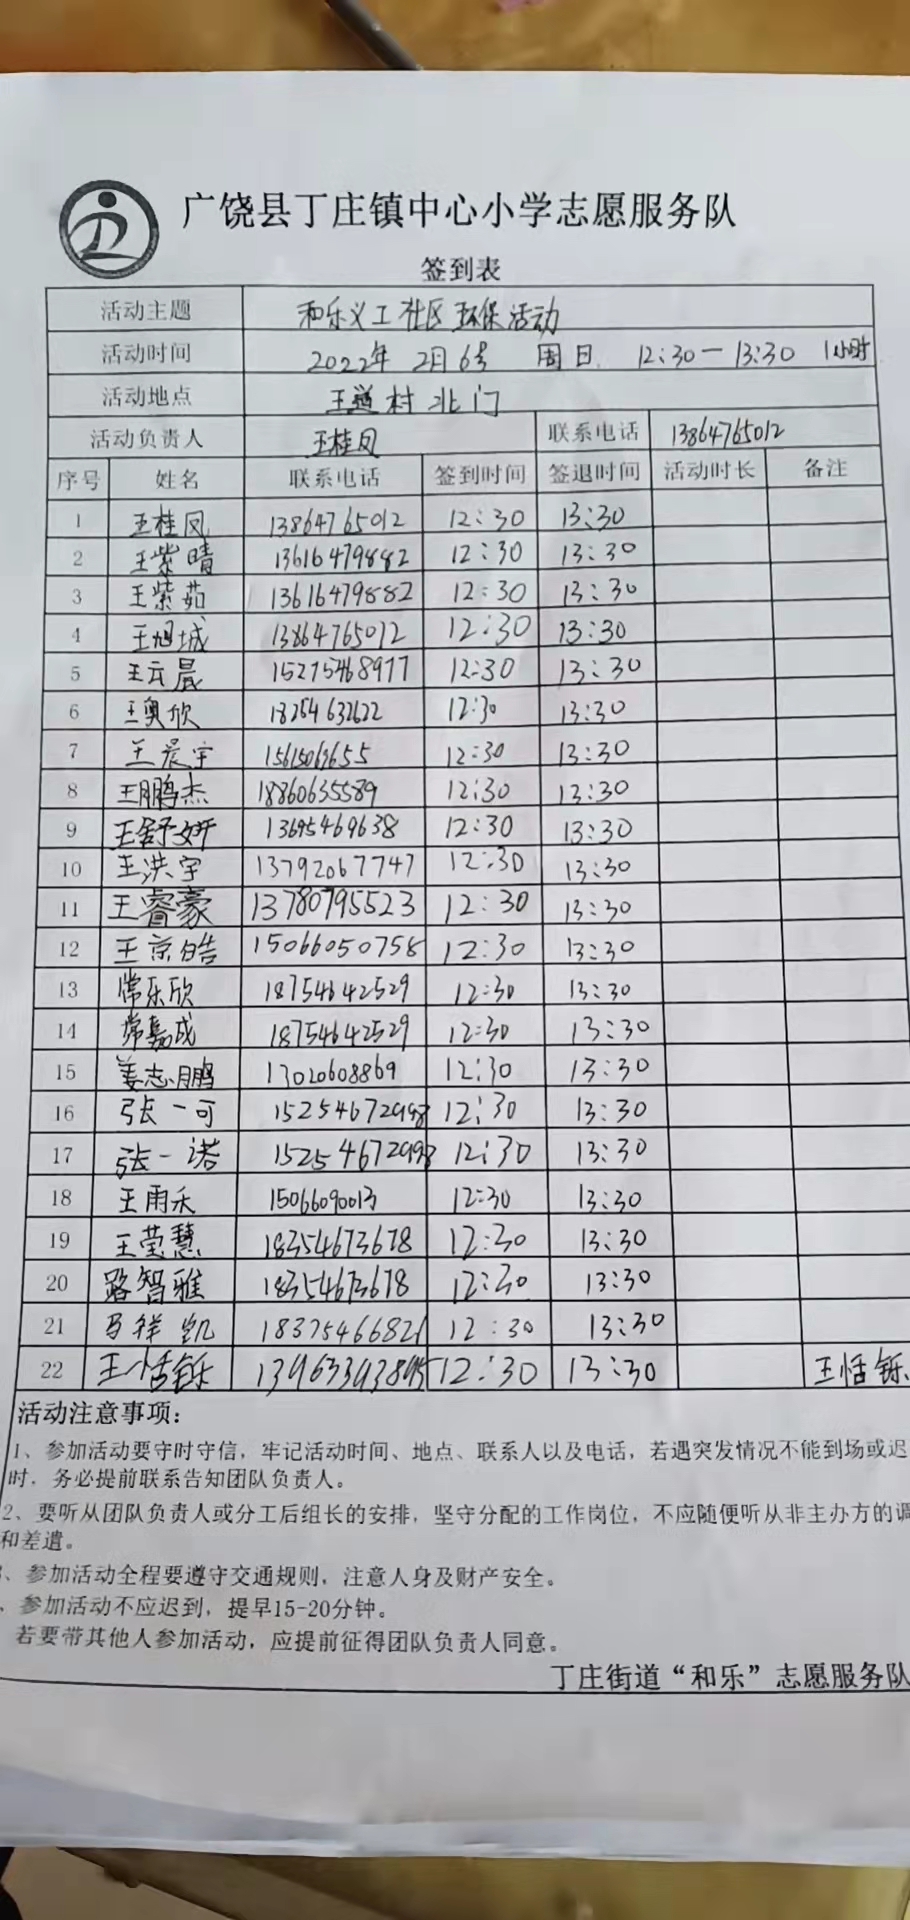 广饶县丁庄镇中心小学志愿服务队
签到表
活动主题 和乐义工社区环保活动
活动时间 2022年 2月6号 周日. 12:30—13:30 1小时
活动地点 王道村北门
活动负责人 王桂凤 联系电话 13864765012
序号 姓名 联系电话 签到时间 签退时间 活动时长 备注
1 王桂凤 13864765012 12:30 13:30
2 王紫晴 13616479882 12:30 13:30
3 王紫茹 13616479882 12:30 13:30
4 王旭城 13864765012 12:30 13:30
5 王云晨 15275468977 12:30 13:30
6 王奥欣 18254632622 12:30 13:30
7 王晨宇 12:30 13:30
8 王鹏杰 18860635589 12:30 13:30
9 王舒妍 13695469638 12:30 13:30
10 王洪宇 13792067747 12:30 13:30
11 王睿豪 13780795523 12:30 13:30
12 王京皓 15066050758 12:30 13:30
13 常乐欣 18754642529 12:30 13:30
14 常嘉成 18754642529 12:30 13:30
15 姜志鹏 13020608869 12:30 13:30
16 张一可 15254672998 12:30 13:30
17 张一诺 15254672998 12:30 13:30
18 王雨禾 15066090013 12:30 13:30
19 王莹慧 18354673678 12:30 13:30
20 路智雅 18354673678 12:30 13:30
21 马祥凯 18375466821 12:30 13:30
22 王恬铄 13963393895 12:30 13:30 王恬铄
活动注意事项：
1、参加活动要守时守信，牢记活动时间、地点、联系人以及电话，若遇突发情况不能到场或迟
时，务必提前联系告知团队负责人。
2、要听从团队负责人或分工后组长的安排，坚守分配的工作岗位，不应随便听从非主办方的调
和差遣。
、参加活动全程要遵守交通规则，注意人身及财产安全。
、参加活动不应迟到，提早15-20分钟。
若要带其他人参加活动，应提前征得团队负责人同意。
丁庄街道“和乐”志愿服务队